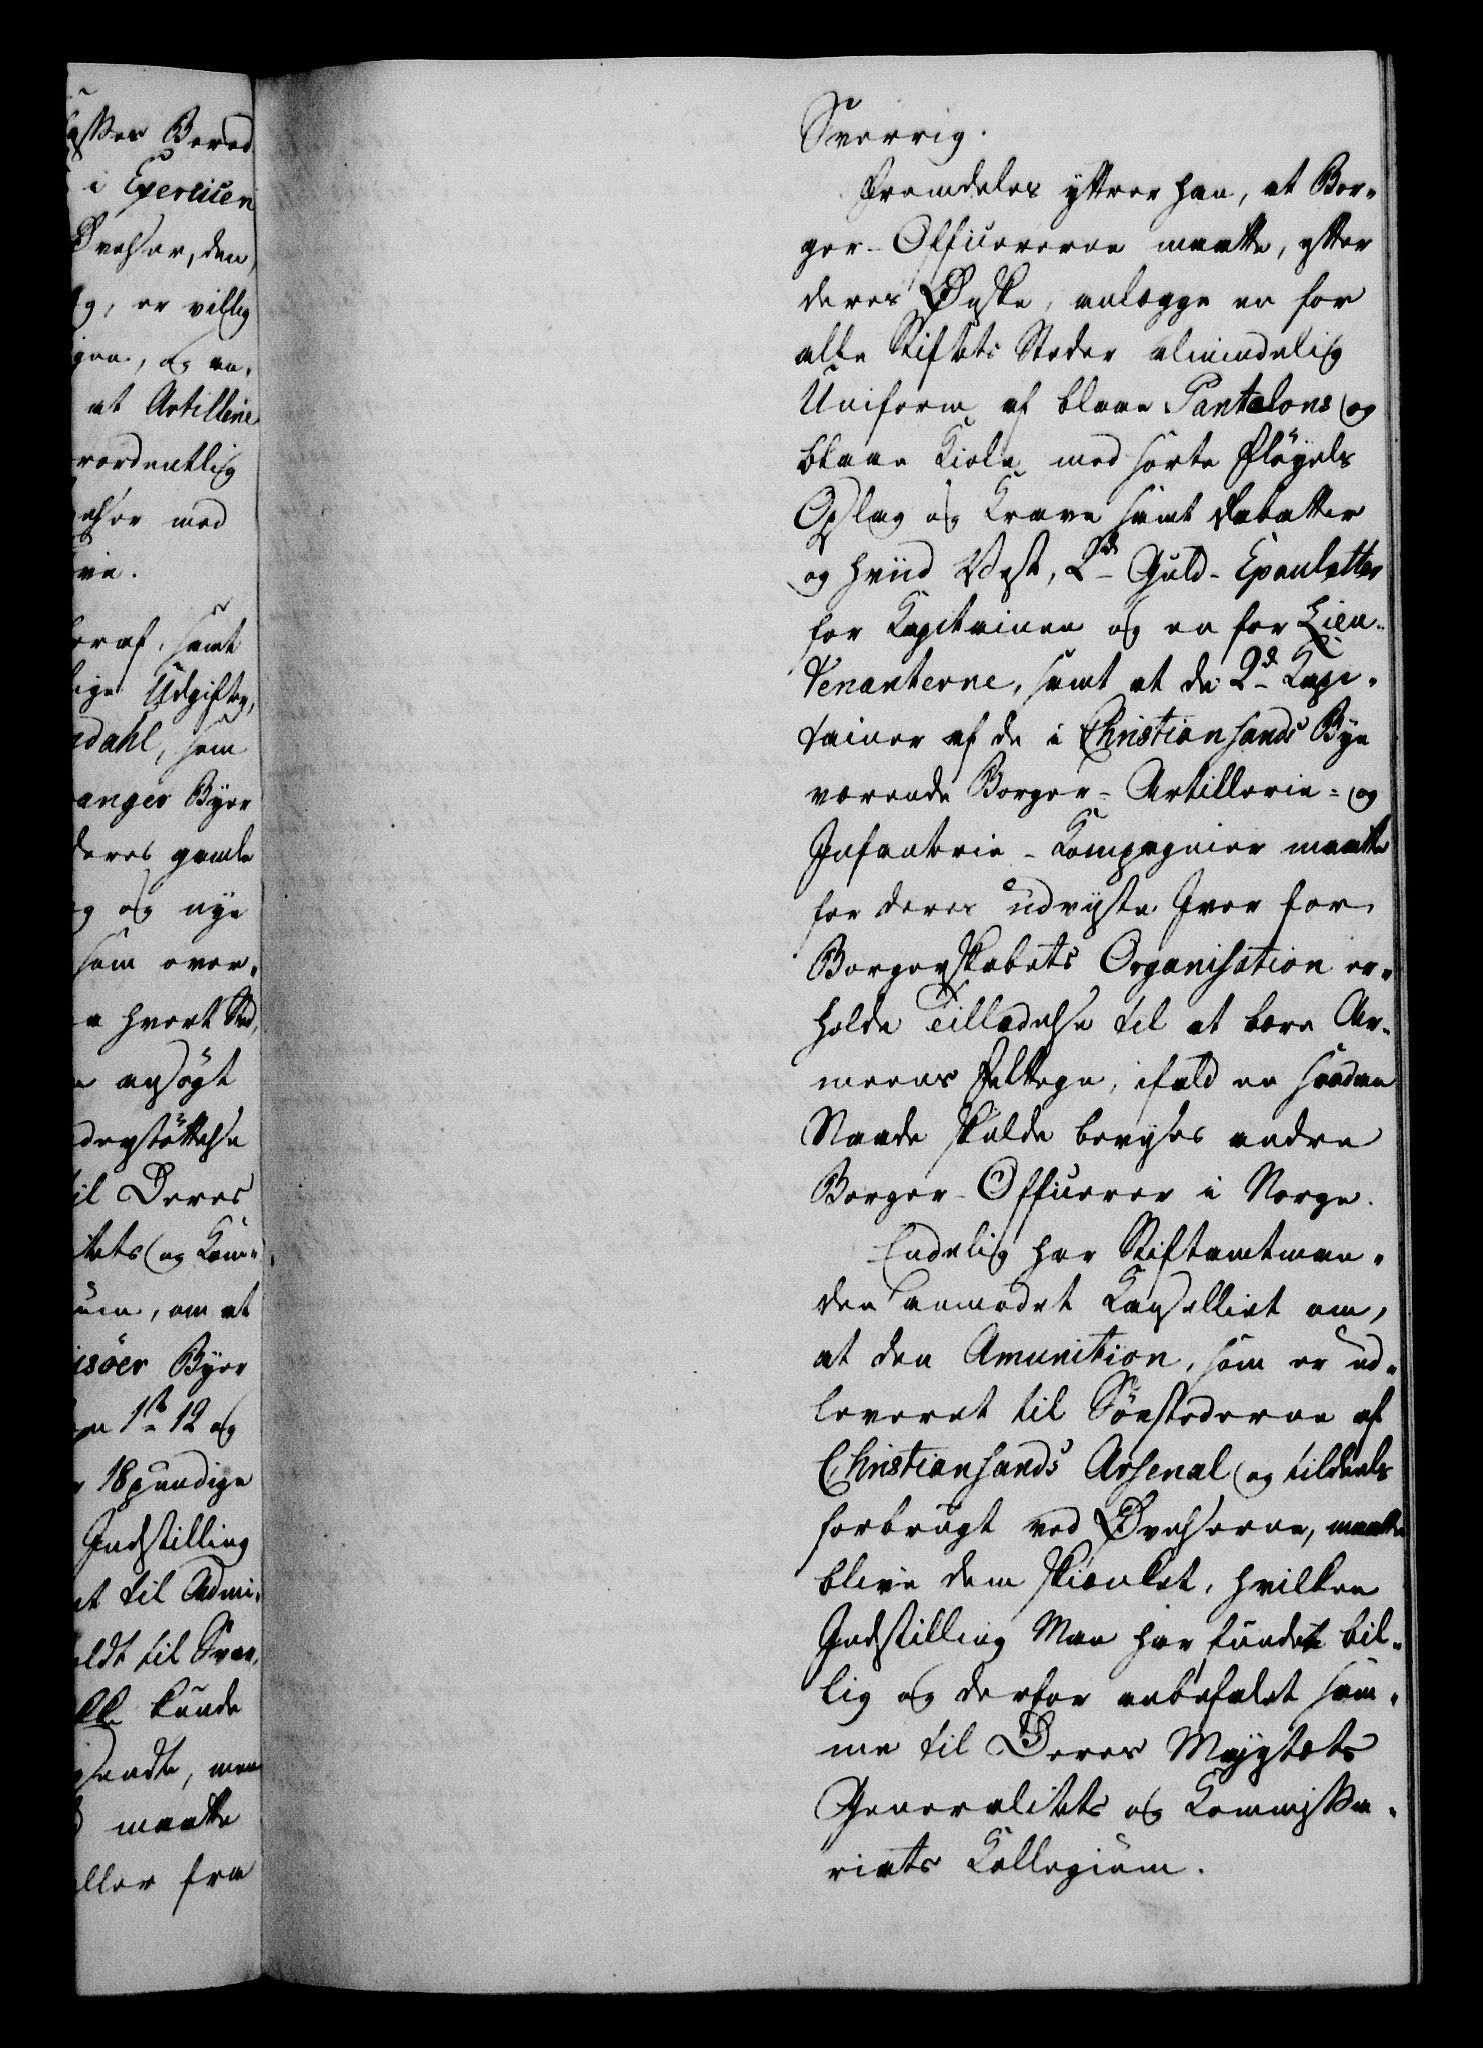 asses Bered
i Exerticen
Øvelser, den
g, er villig
gen, og an-
at Artillerie
rordentlig
elser med
ve.
eraf, samt
lige Udgifter,
dahl, som
anger Byer
deres gamle
g og nye
som over-
hvert Sted,
ansøgt
derstøttelse
til Deres
tets og Kom-
um, om at
isöer Byer
1ste 12 og
18pundige
Indstilling
et til Admi-
eldt til Svar,
kunde
sendte, men
maatte
eller fra
Sverrig.
Fremdeles yttrer han, at Bor-
ger-Officererne maatte, efter
deres Ønske, anlægge en for
alle Stiftets Steder almindelig
Uniform af blaae Pantalons og
blaae Kiole med sorte Fløyels
Opslag og Krave samt Rabatter
og hviid Vest, 2de Guld-Epauletter
for Kapitainen og en for Lieu-
tenanterne, samt at de 2de Kapi-
tainer af de i Christiansands Bye
værende Borger-Artillerie- og
Infanterie-Kompagnier maatte
for deres udviste Iver for
Borgerskabets Organisation er-
holde Tilladelse til at bære Ar-
meens Felttegn, ifald en saadan
Naade skulde bevises andre
Borger-Officerer i Norge.
Endelig har Stiftamtman-
den anmodet Kanselliet om,
at den Amunition, som er ud-
leveret til Søestæderne af
Christiansands Arsenal og tildeels
forbrugt ved Øvelserne, maatte
blive dem skienket, hvilken
Indstilling Man har fundet bil-
lig og derfor anbefalet sam-
me til Deres Majestets
Generalitets og Kommissa-
riats Kollegium.